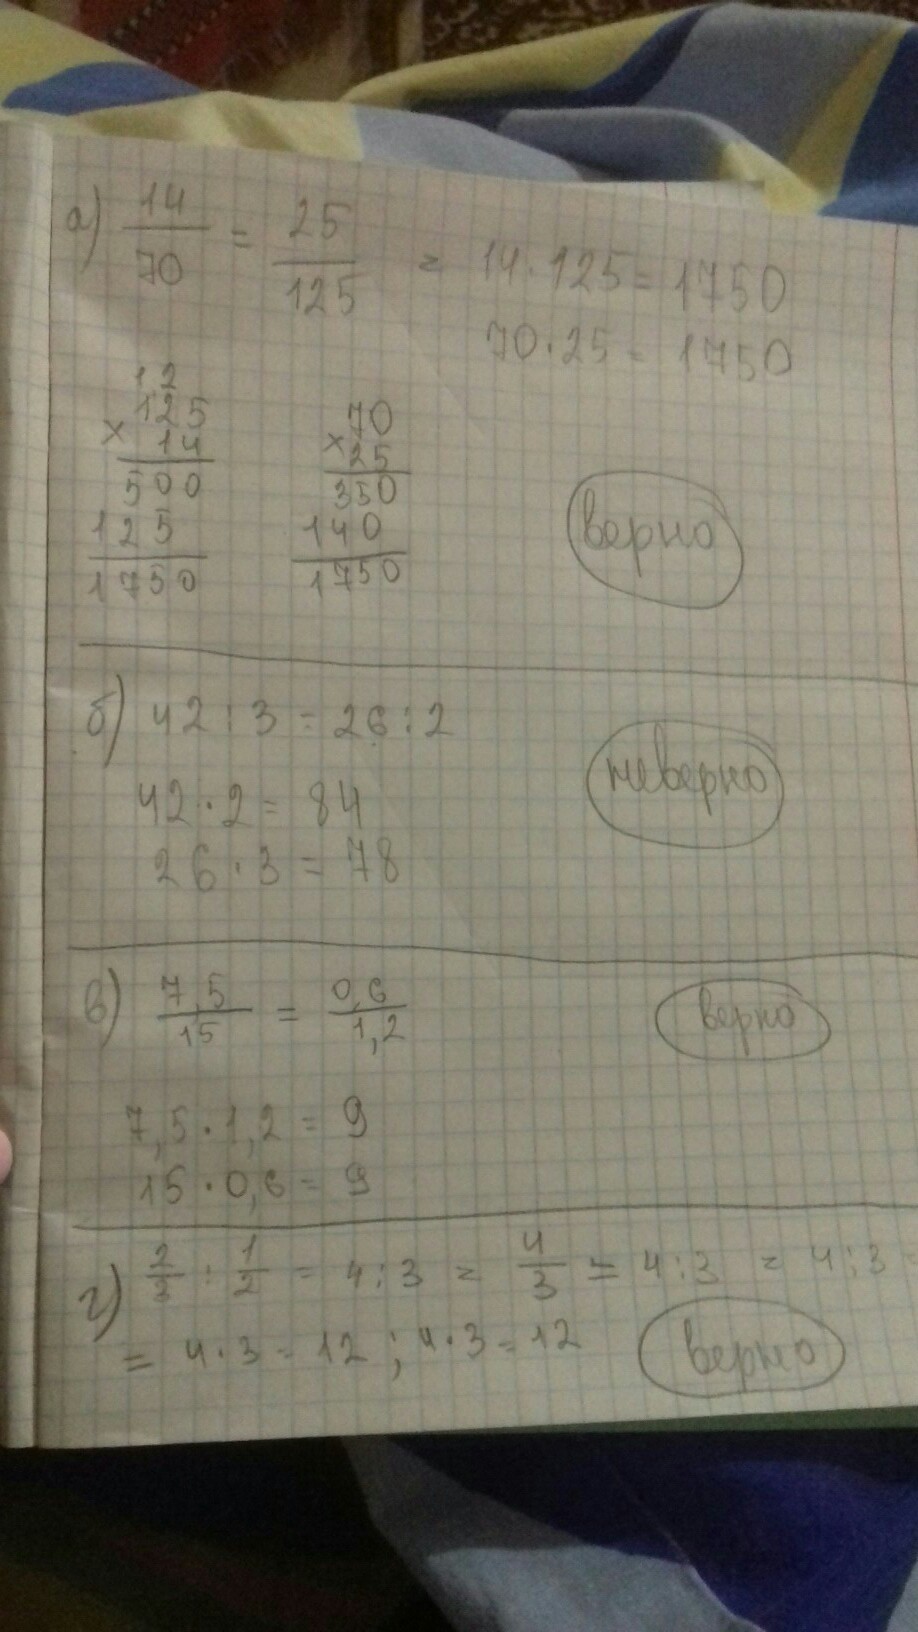 а) 14/70 = 25/125 = 14·125 = 1750
70·25 = 1750
12
125 70
× 14 × 25
500 350
125 140
1750 1750
верно
б) 42:3 = 26:2
42·2 = 84
26·3 = 78
неверно
в) 7,5/15 = 0,6/1,2
верно
7,5·1,2 = 9
15·0,6 = 9
г) 2/3 : 1/2 = 4:3 = 4/3 = 4:3 = 4:3 =
= 4·3 = 12; 4·3 = 12
верно